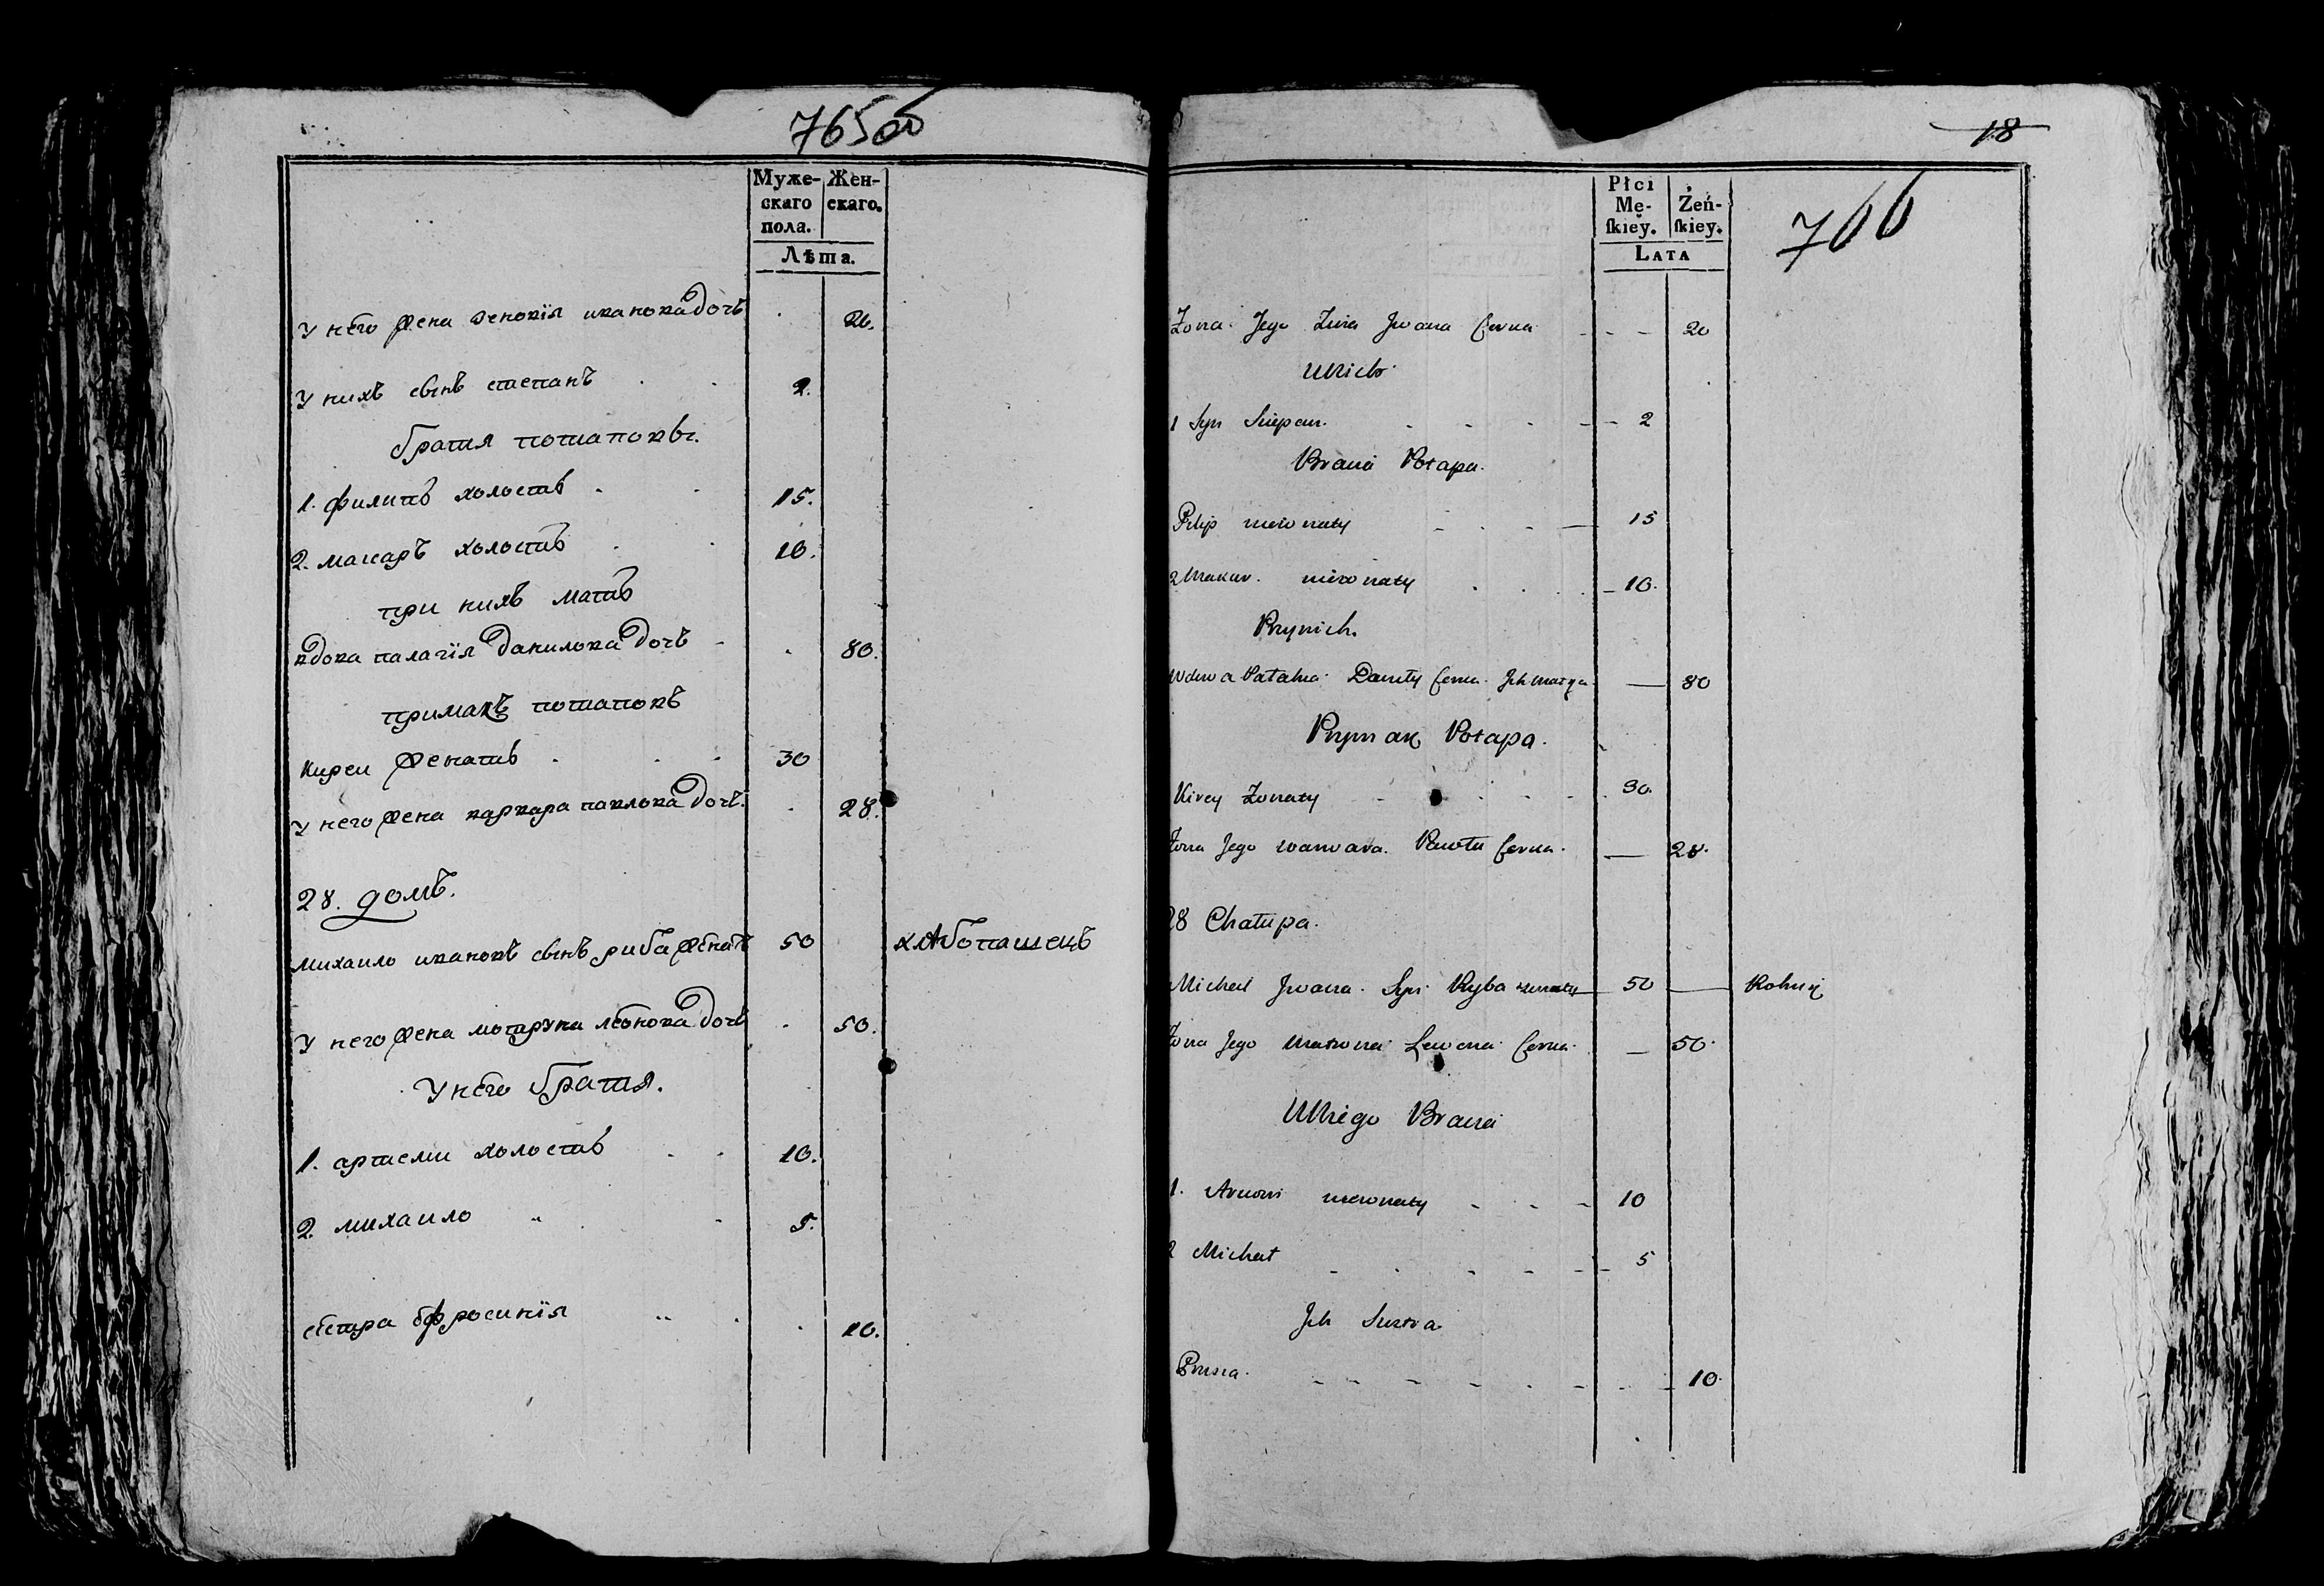 765об
Муже-
скаго
пола.
Жен-
скаго.
Лѣта.
У него жена зеновія иванова дочь 20.
У нихъ сынъ степанъ 2.
братя потаповы.
1. филипъ холостъ 15.
2. макаръ холостъ 10.
при нихъ мать
вдова палагія данилова дочь 80.
примакъ потаповъ
кирей женатъ 30
У него жена варвара павлова дочь. 28.
28. домъ.
михаило ивановъ сынъ риба женатъ 50 хлѣбопашецъ
У него жена мотруна леонова дочь 50.
У него братя.
1. артемии холостъ 10.
2. михаило " 5.
сестра ефросинія " 10.
18
766
Płci
Mę-
skiey.
Żeń-
skiey.
LATA
Żona Jego Zinia Jwana Corka 20
U Nich
1 Syn Stepan. 2
Bracia Potapa.
Pilip nieżonaty 15
2 Makar. nieżonaty 10.
Przy nich.
Wdowa Palahia Daniły Corka Jch Matka 80
Przymak Potapa.
Kirey Żonaty 30.
Żona Jego Warwara. Pawła Corka. 28.
28 Chałupa.
Michał Jwana Syn Ryba żonaty 50 Rolnik
Żona Jego Matrona Lewona Corka 50.
U Niego Bracia
1. Artiom nieżonaty 10
2 Michał 5
Jch Siostra
Prusia. 10.